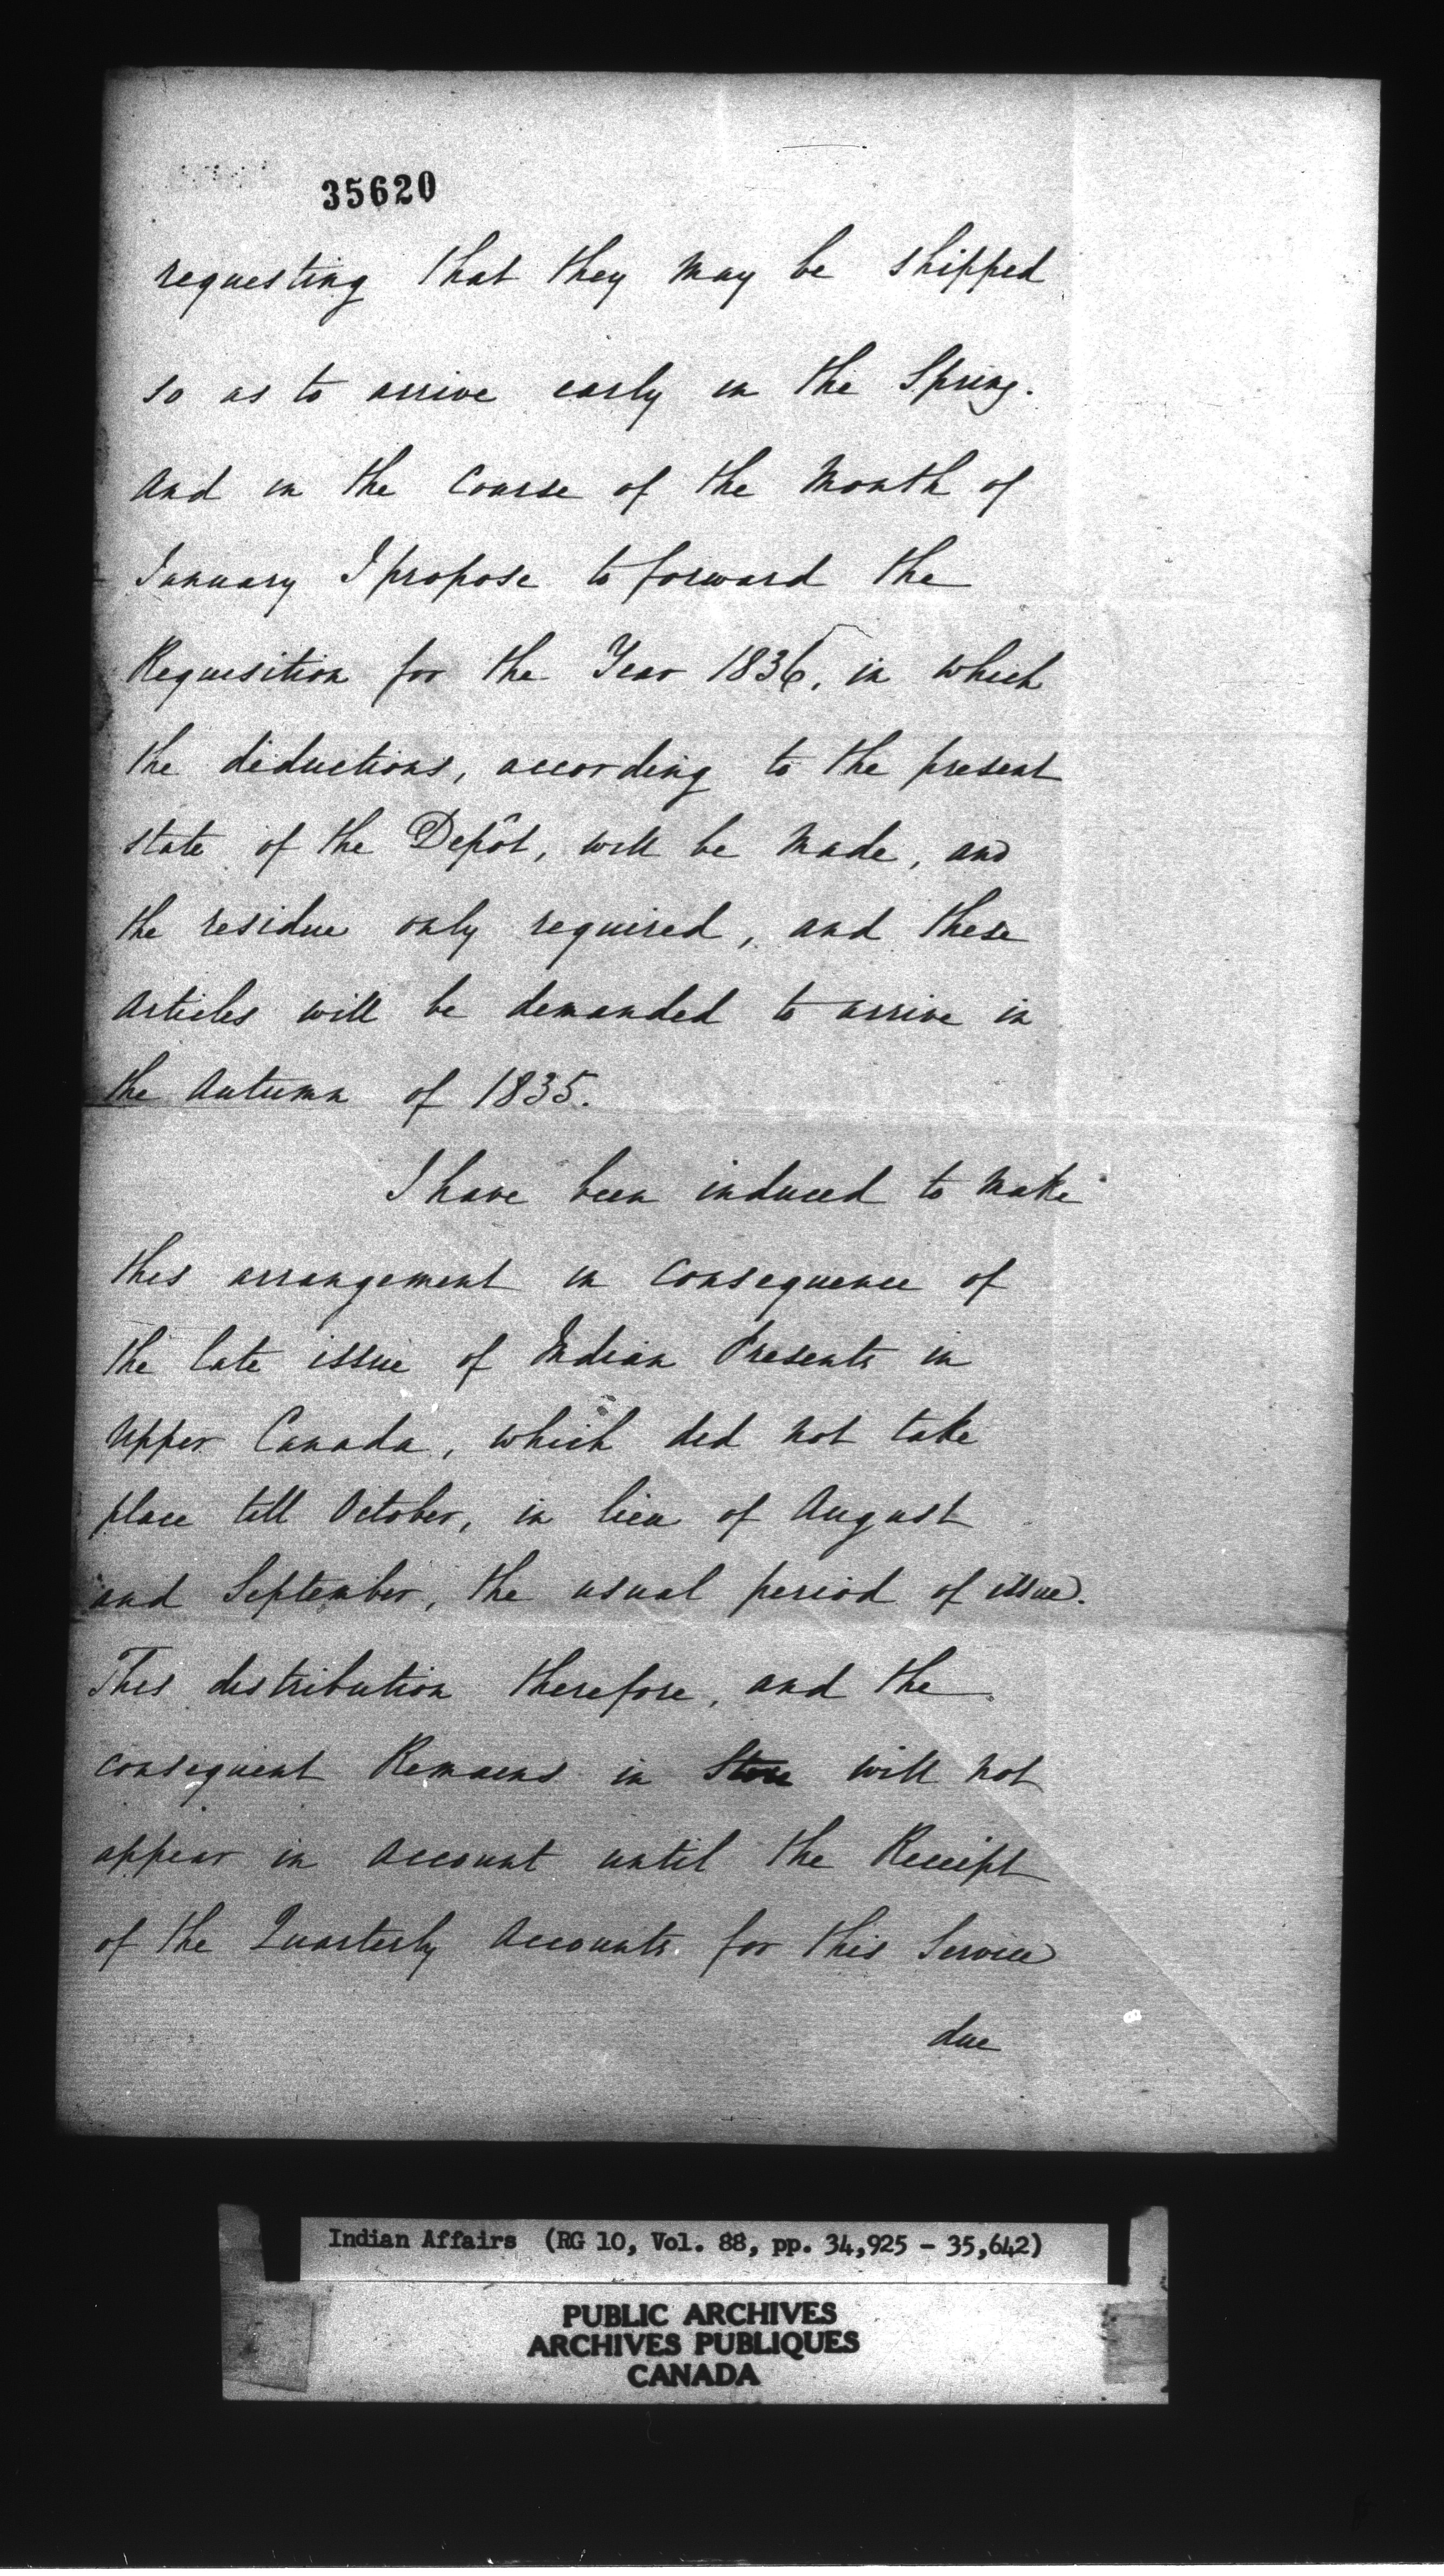 35620
requesting that they may be shipped
so as to arrive early in the Spring.
And in the Course of the Month of
January I propose to forward the
Requisition for the Year 1836, in which
the deductions, according to the present
state of the Depôt, will be made, and
the residue only required, and these
Articles will be demanded to arrive in
the Autumn of 1835.
I have been induced to make
this arrangement in consequence of
the late issue of Indian Presents in
Upper Canada, which did not take
place till October, in lieu of August
and September, the usual period of issue.
This distribution therefore, and the
consequent Remains in Store will not
appear in Account until the Receipt
of the Quarterly Accounts for this Service
due
Indian Affairs (RG 10, Vol. 88, pp. 34,925 - 35,642)
PUBLIC ARCHIVES
ARCHIVES PUBLIQUES
CANADA